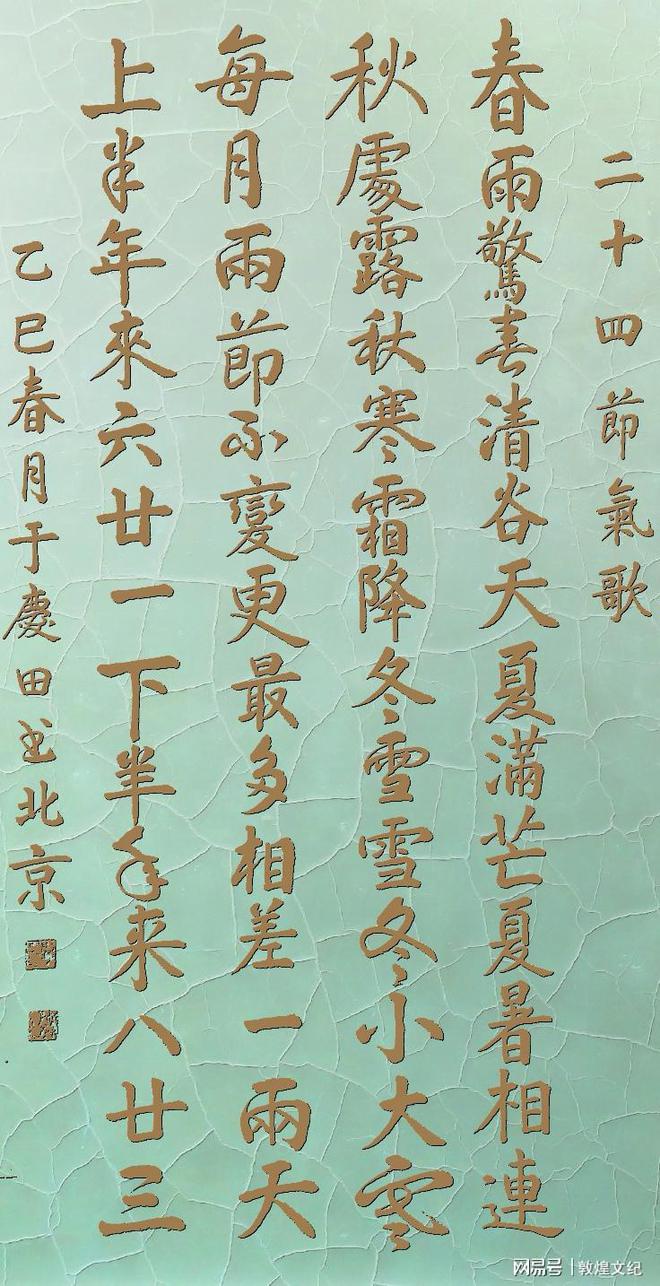 二十四節氣歌
春雨驚春清谷天夏滿芒夏暑相連
秋處露秋寒霜降冬雪雪冬小大寒
每月兩節不變更最多相差一兩天
上半年來六廿一下半年来八廿三
乙巳春月于慶田书北京
网易号 | 敦煌文纪